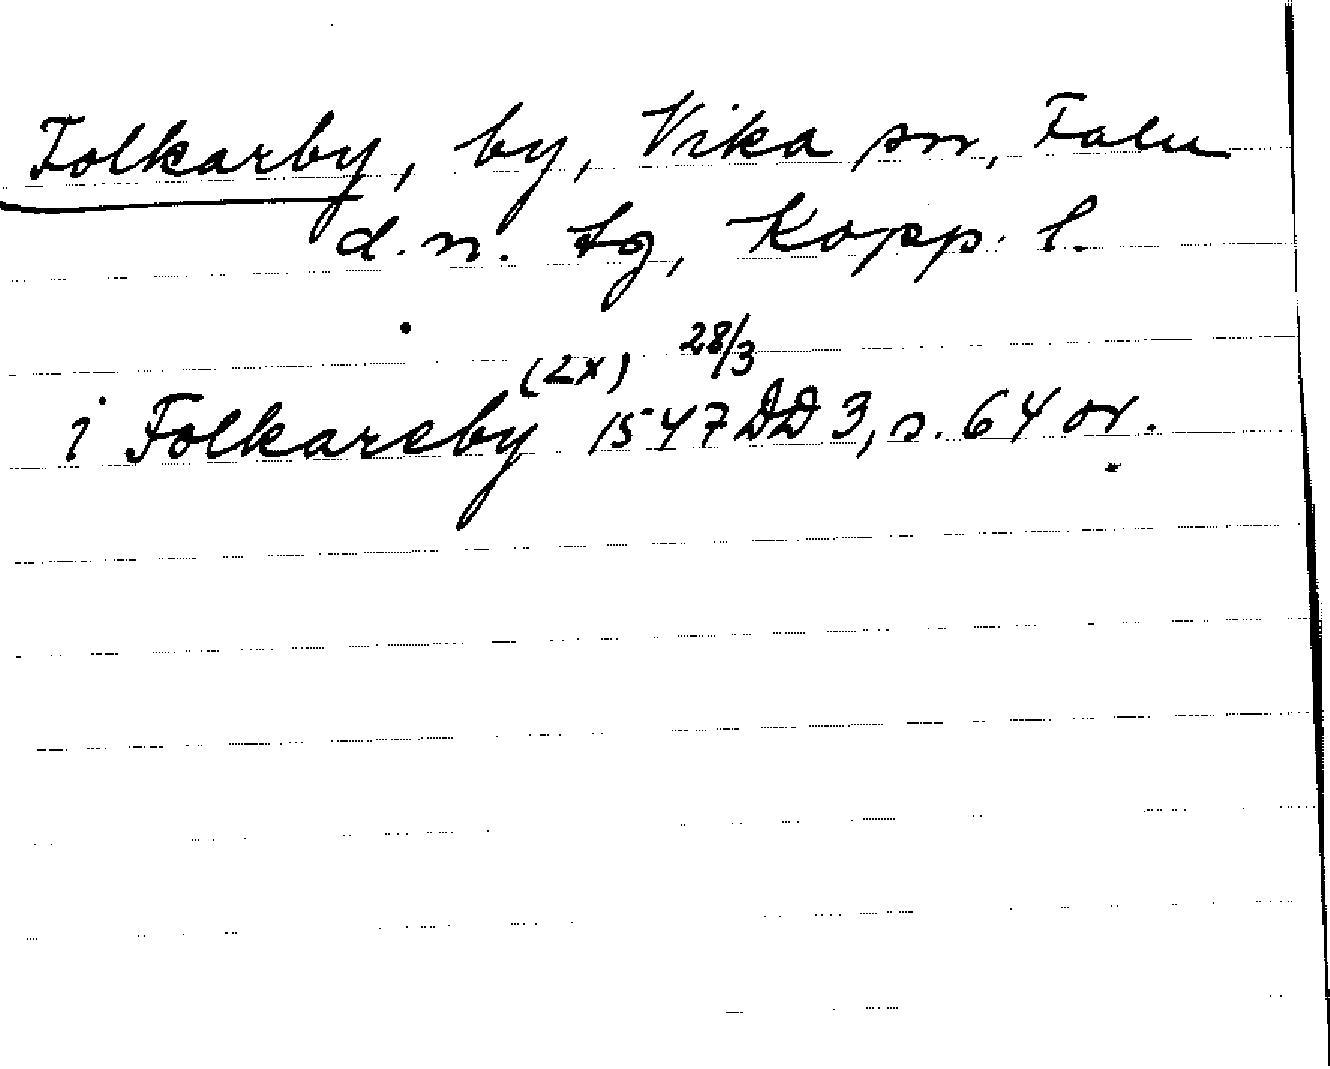 Folkarby, by, Vika sn, Falu
d. n. tg, Kopp. l.
(2x) 28/3
i Folkareby 1547 DD 3, s. 64 or.